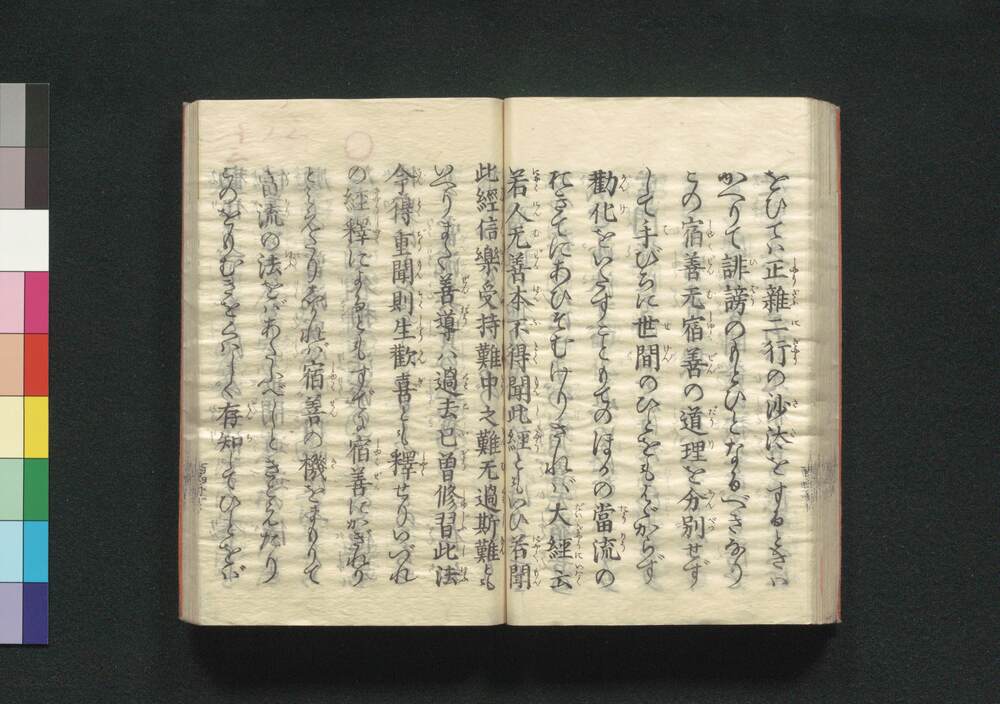 をひては正雜二行の沙汰をするときは
かへりて誹謗のもとひとなるへきなり
この宿善无宿善の道理を分別せず
して手びろに世間のひとをもはゞからず
勸化をいたすこともてのほかの當流の
おきてにあひそむけりされば大經云
若人无善本不得聞此經ともいひ若聞
此經信樂受持難中之難无過斯難とも
いへりまた善導は過去已曾修習此法
今得重聞則生歡喜とも釋せりいづれ
の經釋によるともすでに宿善にかぎれり
とみえたりしかれば宿善の機をまもりて
當流の法をばあたふべしときこえたり
このをもむきをくはしく存知してひとをば